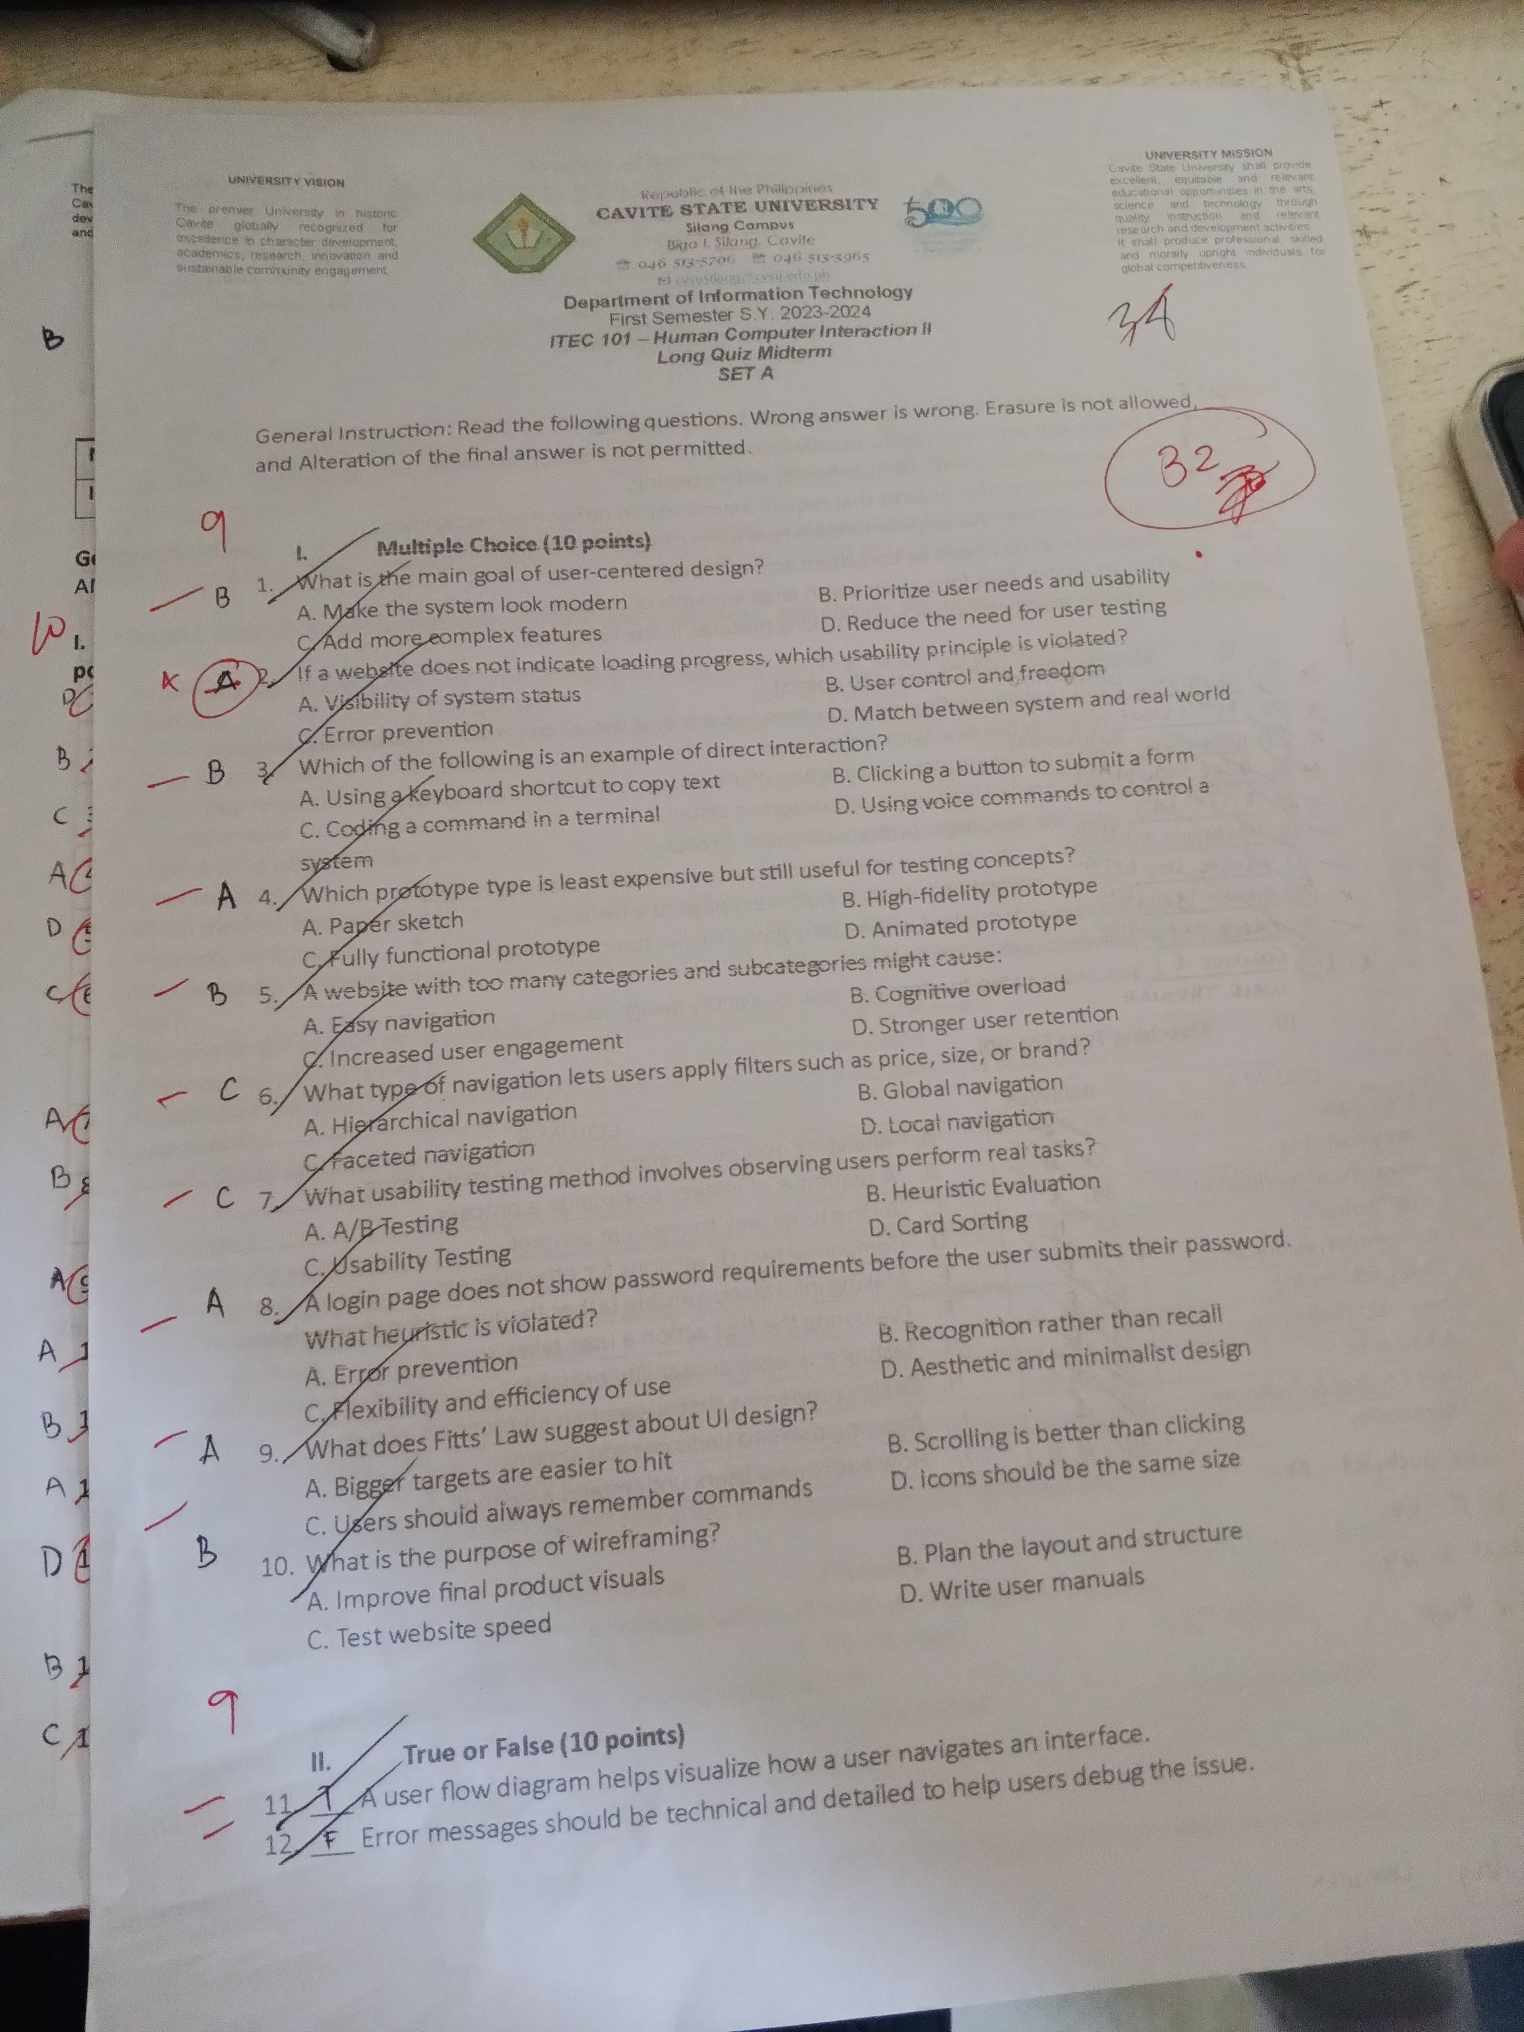 UNIVERSITY VISION
The premier University in historic
Cavite globally recognized for
excellence in character development,
academics, research, innovation and
sustainable community engagement.
Republic of the Philippines
CAVITE STATE UNIVERSITY
Silang Campus
Biga I, Silang, Cavite
046 513-5706 046 513-3965
500
UNIVERSITY MISSION
Cavite State University shall provide
excellent, equitable and relevant
educational opportunities in the arts,
science and technology through
quality instruction and relevant
research and development activities.
It shall produce professional, skilled
and morally upright individuals for
global competitiveness.
Department of Information Technology
First Semester S.Y. 2023-2024
ITEC 101 – Human Computer Interaction II
Long Quiz Midterm
SET A
General Instruction: Read the following questions. Wrong answer is wrong. Erasure is not allowed,
and Alteration of the final answer is not permitted.
32
9
I. Multiple Choice (10 points)
B 1. What is the main goal of user-centered design?
A. Make the system look modern B. Prioritize user needs and usability
C. Add more complex features D. Reduce the need for user testing
A 2. If a website does not indicate loading progress, which usability principle is violated?
A. Visibility of system status B. User control and freedom
C. Error prevention D. Match between system and real world
B 3. Which of the following is an example of direct interaction?
A. Using a keyboard shortcut to copy text B. Clicking a button to submit a form
C. Coding a command in a terminal D. Using voice commands to control a
system
A 4. Which prototype type is least expensive but still useful for testing concepts?
A. Paper sketch B. High-fidelity prototype
C. Fully functional prototype D. Animated prototype
B 5. A website with too many categories and subcategories might cause:
A. Easy navigation B. Cognitive overload
C. Increased user engagement D. Stronger user retention
C 6. What type of navigation lets users apply filters such as price, size, or brand?
A. Hierarchical navigation B. Global navigation
C. Faceted navigation D. Local navigation
C 7. What usability testing method involves observing users perform real tasks?
A. A/B Testing B. Heuristic Evaluation
C. Usability Testing D. Card Sorting
A 8. A login page does not show password requirements before the user submits their password.
What heuristic is violated?
A. Error prevention B. Recognition rather than recall
C. Flexibility and efficiency of use D. Aesthetic and minimalist design
A 9. What does Fitts' Law suggest about UI design?
A. Bigger targets are easier to hit B. Scrolling is better than clicking
C. Users should always remember commands D. Icons should be the same size
B 10. What is the purpose of wireframing?
A. Improve final product visuals B. Plan the layout and structure
C. Test website speed D. Write user manuals
9
II. True or False (10 points)
11. T A user flow diagram helps visualize how a user navigates an interface.
12. F Error messages should be technical and detailed to help users debug the issue.